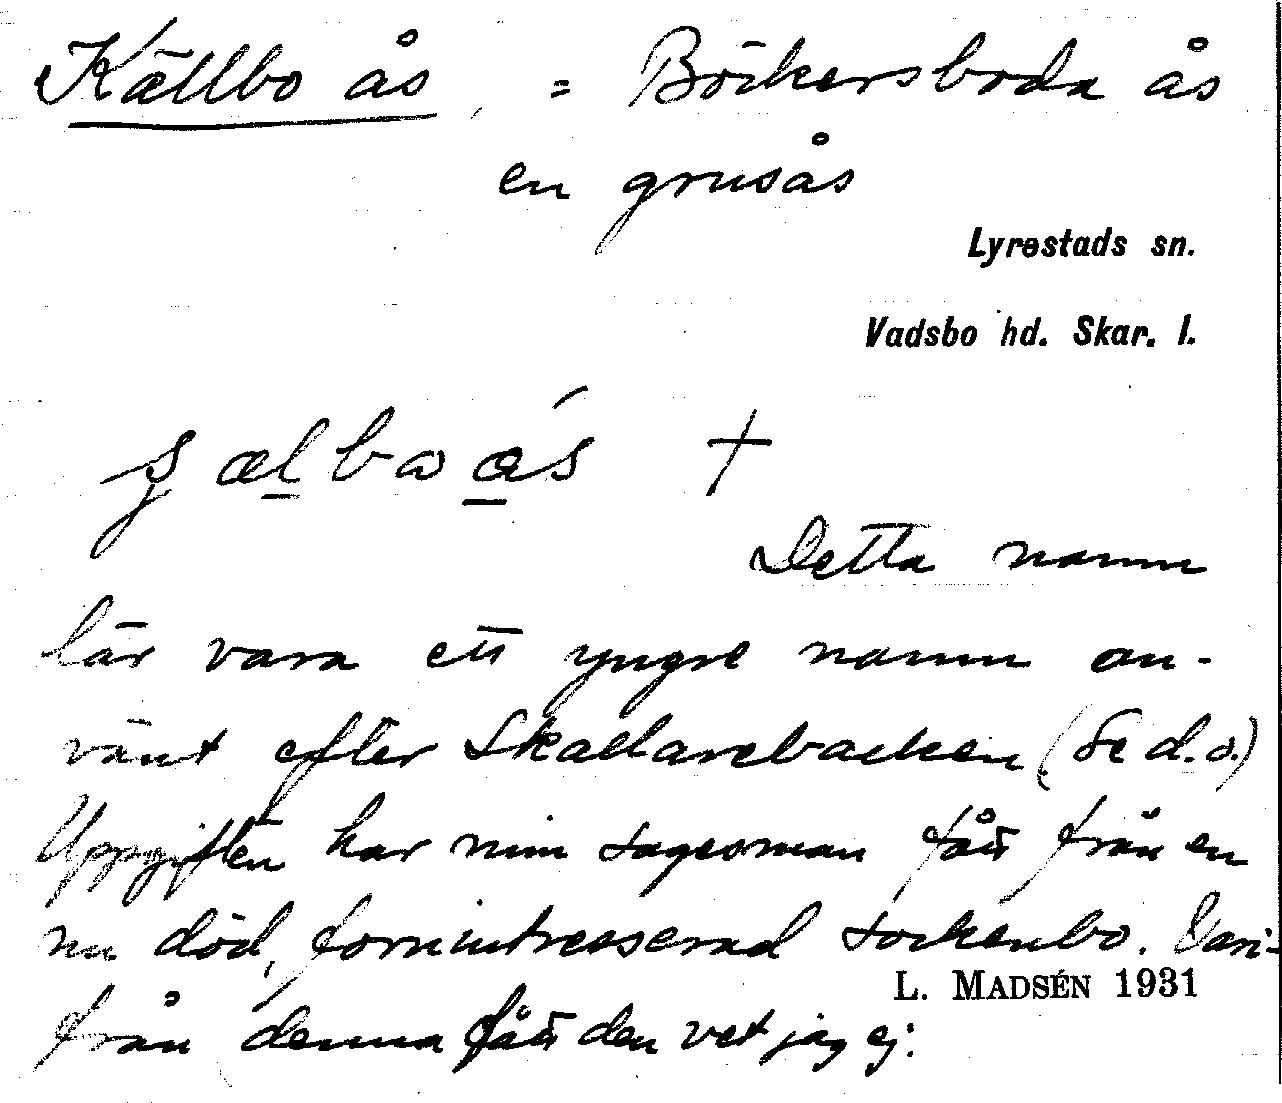 Källbo ås, = Böckersboda ås
en grusås
Lyrestads sn.
Vadsbo hd. Skar. l.
Detta namn
lär vara ett yngre namn an-
vänt efter Skallarebacken (Se d.o.)
Uppgiften har min sagesman fått från en
nu död, fornintresserad sockenbo. Vari-
L. MADSÉN 1931
från denna fått den vet jag ej.